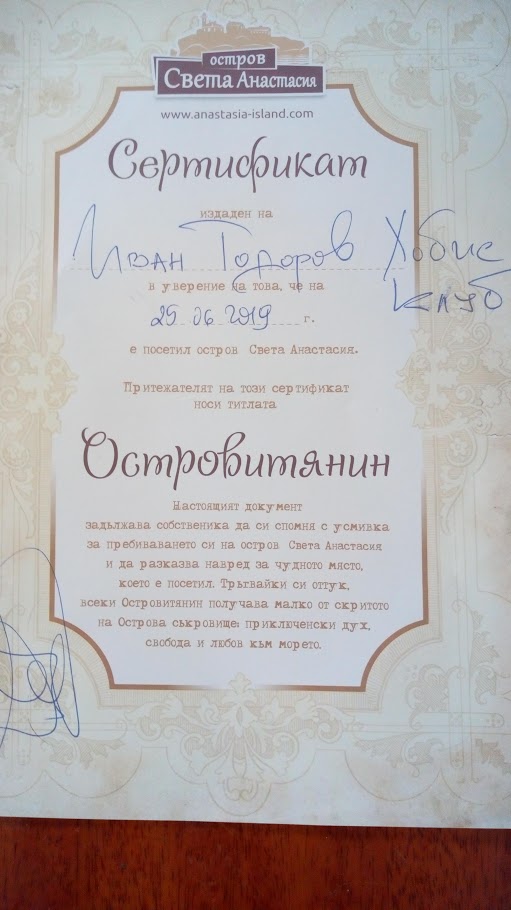 остров
Света Анастасия
www.anastasia-island.com
Сертификат
издаден на
Иван Тодоров Хобис
клуб
в уверение на това, че на
25 06 2019 г.
е посетил остров Света Анастасия.
Притежателят на този сертификат
носи титлата
Островитянин
Настоящият документ
задължава собственика да си спомня с усмивка
за пребиваването си на остров Света Анастасия
и да разказва навред за чудното място,
което е посетил. Тръгвайки си оттук,
всеки Островитянин получава малко от скритото
на Острова съкровище: приключенски дух,
свобода и любов към морето.